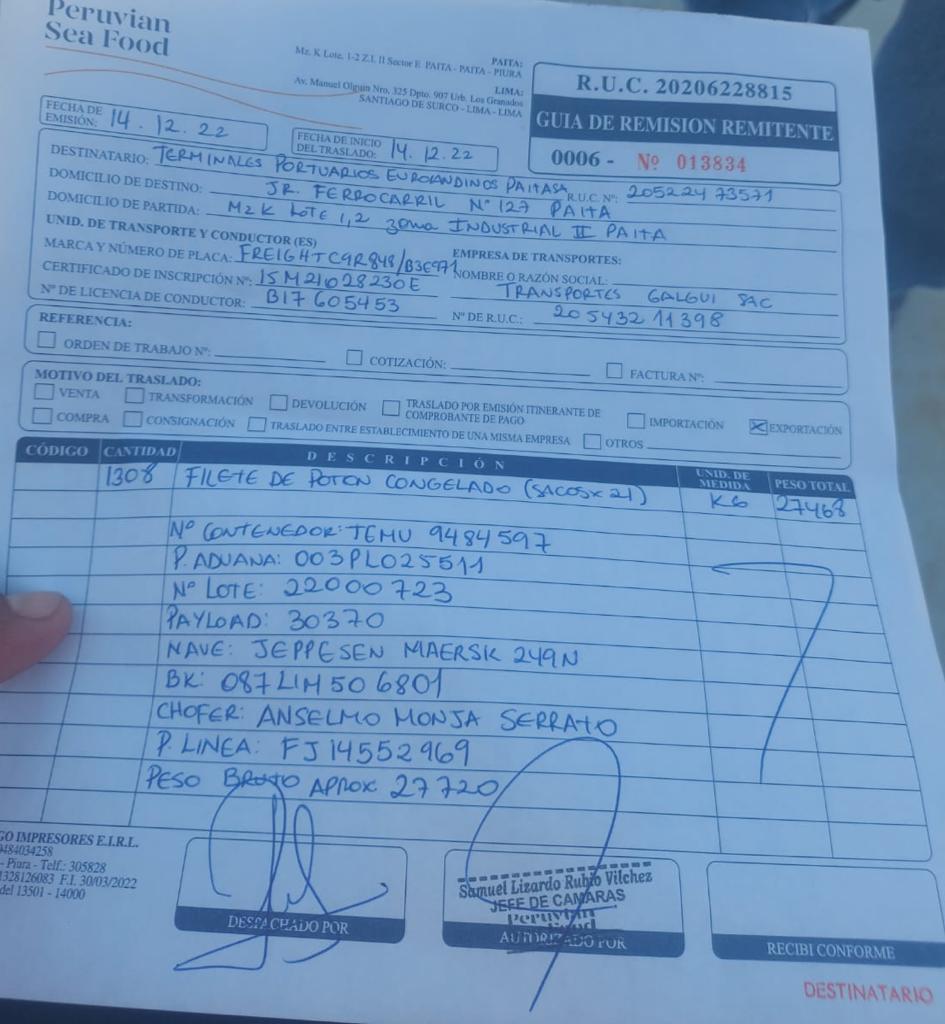 Peruvian
Sea Food
PAITA:
Mz. K Lote. 1-2 Z.I. II Sector E PAITA - PAITA - PIURA
LIMA:
Av. Manuel Olguin Nro. 325 Dpto. 907 Urb. Los Granados
SANTIAGO DE SURCO - LIMA - LIMA
R.U.C. 20206228815
GUIA DE REMISION REMITENTE
0006 - Nº 013834
FECHA DE EMISIÓN: 14.12.22
FECHA DE INICIO DEL TRASLADO: 14.12.22
DESTINATARIO: TERMINALES PORTUARIOS EUROANDINOS PAITA SA R.U.C. Nº: 20522473571
DOMICILIO DE DESTINO: JR. FERROCARRIL Nº 127 PAITA
DOMICILIO DE PARTIDA: Mz K LOTE 1,2 ZONA INDUSTRIAL II PAITA
UNID. DE TRANSPORTE Y CONDUCTOR (ES)
MARCA Y NÚMERO DE PLACA: FREIGHT C9R848/B3E971
CERTIFICADO DE INSCRIPCIÓN Nº: 15M21028230E
Nº DE LICENCIA DE CONDUCTOR: B17605453
EMPRESA DE TRANSPORTES:
NOMBRE O RAZÓN SOCIAL: TRANSPORTES GALGUI SAC
Nº DE R.U.C.: 20543211398
REFERENCIA:
ORDEN DE TRABAJO Nº: COTIZACIÓN: FACTURA Nº:
MOTIVO DEL TRASLADO:
VENTA TRANSFORMACIÓN DEVOLUCIÓN TRASLADO POR EMISIÓN ITINERANTE DE COMPROBANTE DE PAGO IMPORTACIÓN EXPORTACIÓN
COMPRA CONSIGNACIÓN TRASLADO ENTRE ESTABLECIMIENTO DE UNA MISMA EMPRESA OTROS
CÓDIGO CANTIDAD DESCRIPCIÓN UNID. DE MEDIDA PESO TOTAL
1308 FILETE DE POTON CONGELADO (SACOS x 21) KG 27468
Nº CONTENEDOR: TEMU 9484597
P. ADUANA: 003PL025511
Nº LOTE: 22000723
PAYLOAD: 30370
NAVE: JEPPESEN MAERSK 249N
BK: 087LIM506801
CHOFER: ANSELMO MONJA SERRATO
P. LINEA: FJ14552969
PESO BRUTO APROX 27720
GO IMPRESORES E.I.R.L.
0484034258
- Piura - Telf.: 305828
1328126083 F.I. 30/03/2022
del 13501 - 14000
DESPACHADO POR
Samuel Lizardo Rubio Vilchez
JEFE DE CAMARAS
Peruvian
AUTORIZADO POR
RECIBI CONFORME
DESTINATARIO